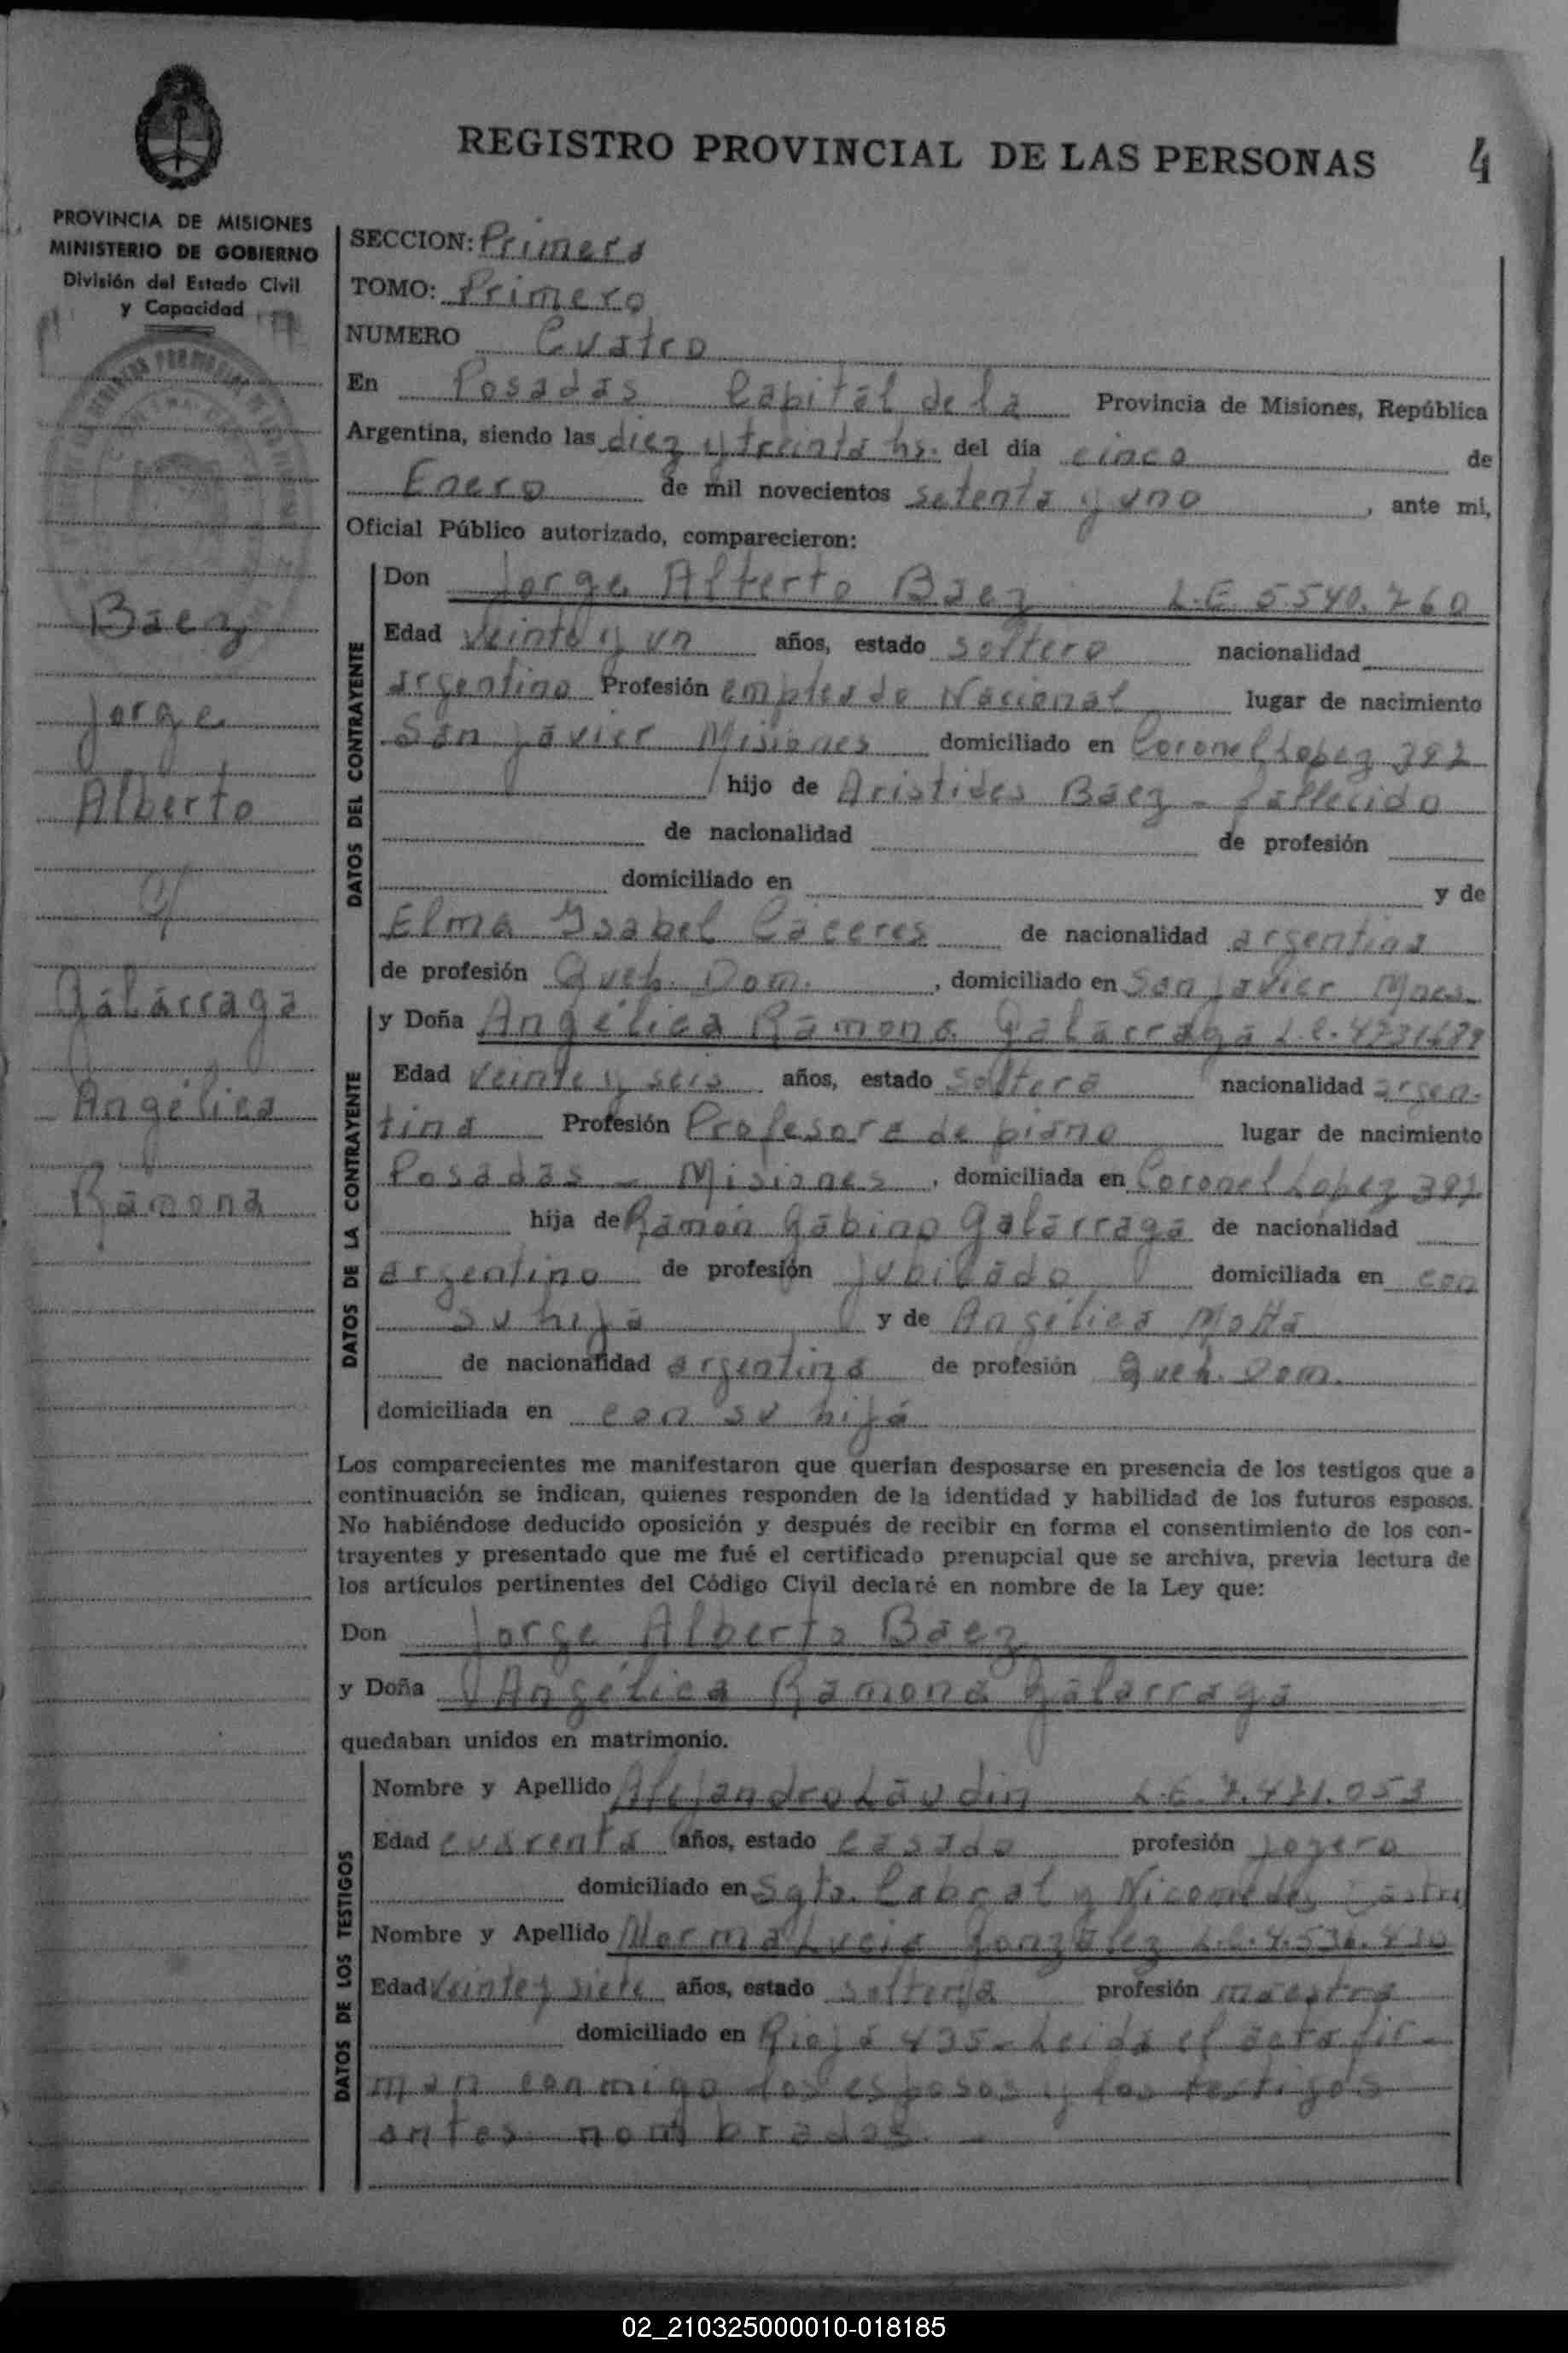 REGISTRO PROVINCIAL DE LAS PERSONAS 4
PROVINCIA DE MISIONES
MINISTERIO DE GOBIERNO
División del Estado Civil
y Capacidad
Baez
Jorge
Alberto
y
Galarraga
Angélica
Ramona
SECCION: Primera
TOMO: Primero
NUMERO Cuatro
En Posadas Capital de la Provincia de Misiones, República
Argentina, siendo las diez y treinta hs. del día cinco de
Enero de mil novecientos setenta y uno, ante mi,
Oficial Público autorizado, comparecieron:
DATOS DEL CONTRAYENTE
Don Jorge Alberto Baez L.E. 5.540.760
Edad veinte y un años, estado soltero nacionalidad
argentino Profesión empleado Nacional lugar de nacimiento
San Javier Misiones domiciliado en Coronel Lopez
hijo de Aristides Baez - fallecido
de nacionalidad de profesión
domiciliado en y de
Elma Ysabel Caceres de nacionalidad argentina
de profesión Queh. Dom., domiciliado en San Javier Mnes.
DATOS DE LA CONTRAYENTE
y Doña Angélica Ramona Galarraga L.C.
Edad veinte y seis años, estado soltera nacionalidad argen-
tina Profesión Profesora de piano lugar de nacimiento
Posadas - Misiones, domiciliada en Coronel Lopez
hija de Ramón Gabino Galarraga de nacionalidad
argentino de profesión jubilado domiciliada en con
su hija y de Angélica Motta
de nacionalidad argentina de profesión Queh. Dom.
domiciliada en con su hija
Los comparecientes me manifestaron que querían desposarse en presencia de los testigos que a
continuación se indican, quienes responden de la identidad y habilidad de los futuros esposos.
No habiéndose deducido oposición y después de recibir en forma el consentimiento de los con-
trayentes y presentado que me fué el certificado prenupcial que se archiva, previa lectura de
los artículos pertinentes del Código Civil declaré en nombre de la Ley que:
Don Jorge Alberto Baez
y Doña Angélica Ramona Galarraga
quedaban unidos en matrimonio.
DATOS DE LOS TESTIGOS
Nombre y Apellido Alejandro Laudin L.E.
Edad cuarenta años, estado casado profesión joyero
domiciliado en Sgto. Cabral y Nicomedes Castro
Nombre y Apellido Norma Lucia Gonzalez L.C.
Edad veinte y siete años, estado soltera profesión maestra
domiciliado en Rioja 435 - Leida el acta fir-
man conmigo los esposos y los testigos
antes nombrados. -
02_210325000010-018185